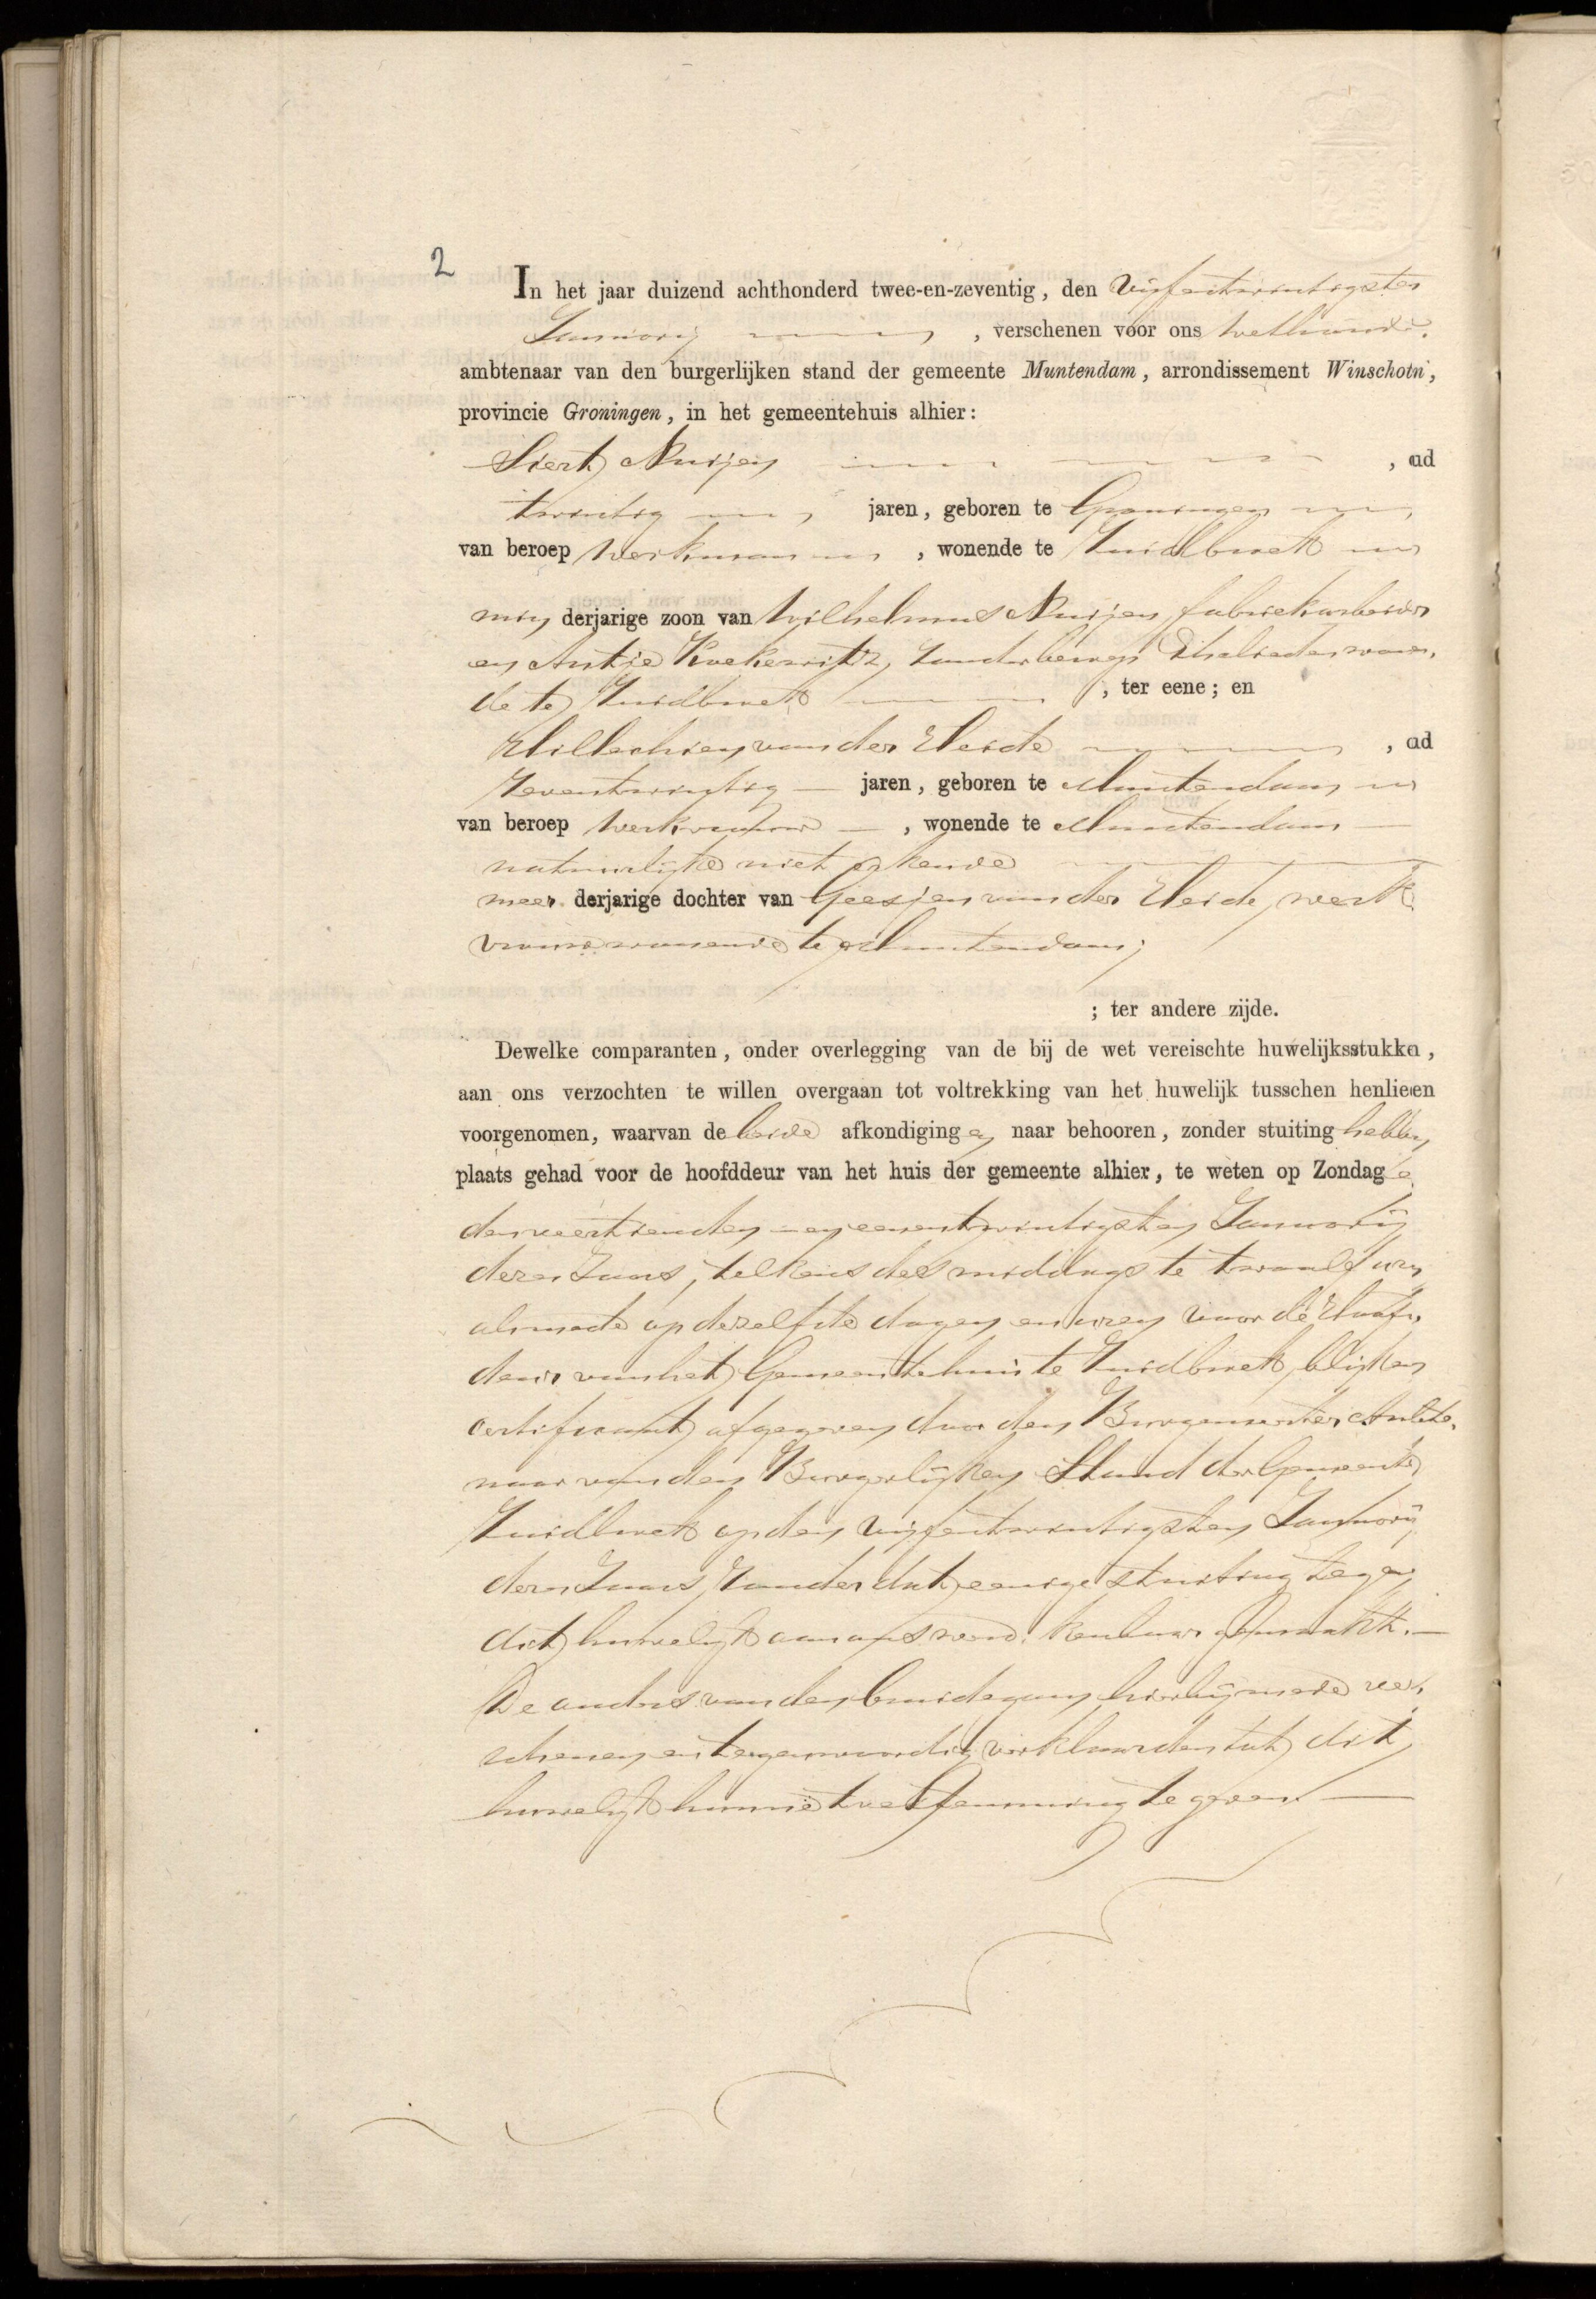 2
In het jaar duizend achthonderd twee-en-zeventig, den vijfentwintigsten
Januarij , verschenen voor ons Wethouder
ambtenaar van den burgerlijken stand der gemeente Muntendam, arrondissement Winschoten,
provincie Groningen, in het gemeentehuis alhier:
Siert Nuijen , oud
twintig jaren, geboren te Groningen
van beroep Werkman , wonende te Zuidbroek
min derjarige zoon van Wilhelmus Nuijen fabriekarbeider
en Antje zonder beroep Ehelieden wonen-
de te Zuidbroek , ter eene; en
Hillechien van der Heide , oud
Zeventwintig — jaren, geboren te Muntendam
van beroep Werkvrouw — , wonende te Muntendam —
natuurlijke niet erkende
meer derjarige dochter van Geesjen van der Heide, werk-
vrouw wonende te Muntendam;
; ter andere zijde.
Dewelke comparanten, onder overlegging van de bij de wet vereischte huwelijksstukken,
aan ons verzochten te willen overgaan tot voltrekking van het huwelijk tusschen henlieden
voorgenomen, waarvan de beide afkondigingen naar behooren, zonder stuiting hebben
plaats gehad voor de hoofddeur van het huis der gemeente alhier, te weten op Zondage
den veertienden en eenentwintigsten Januarij
dezes Jaars, telkens des middags te twaalf uren
alsmede op dezelfde dagen en uren voor de Hoofd-
deur van het Gemeentehuis te Zuidbroek, blijkens
certificaat afgegeven door den Burgemeester Ambte-
naar van den Burgerlijken Stand der Gemeente
Zuidbroek op den vijfentwintigsten Januarij
dezes Jaars, Zonder dat eenige stuiting tegen
dit huwelijk aan ons werd kenbaar gemaakt. —
De ouders van den bruidegom hierbij mede ver-
schenen en tegenwoordig verklaarden tot dit
huwelijk hunne toestemming te geven. —